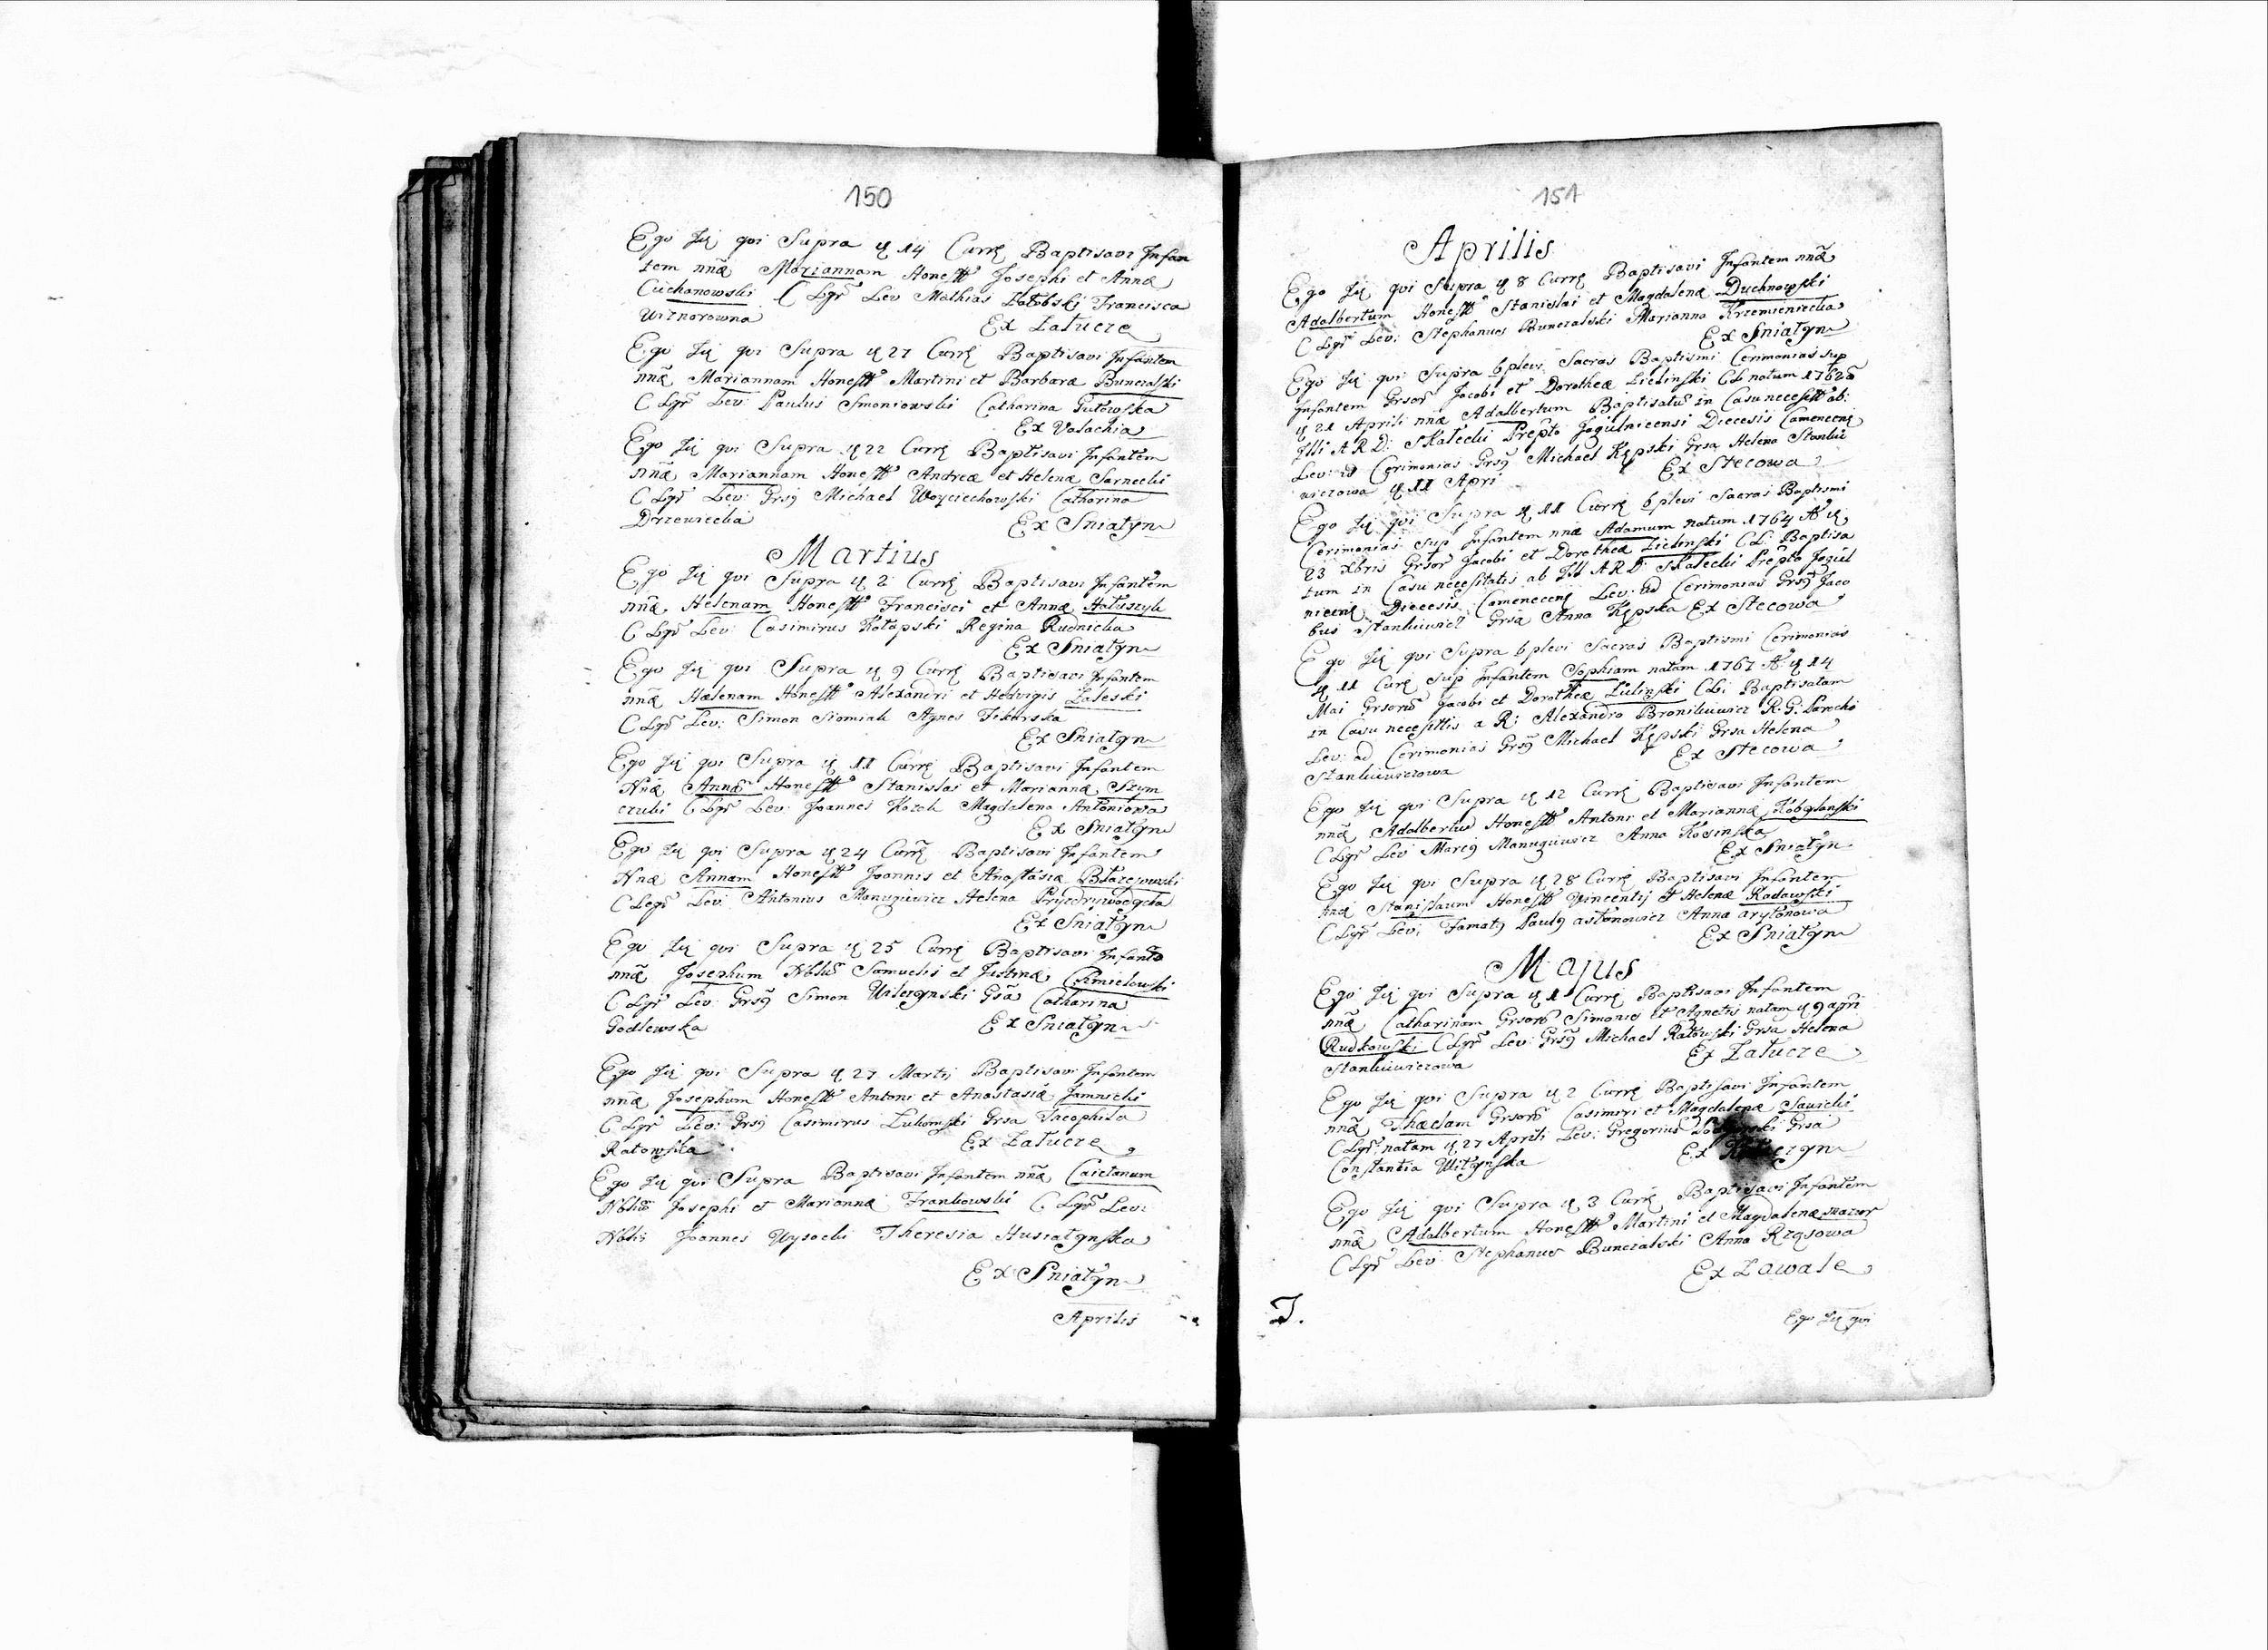 150
Ego Iẹ qui Supra ꝗ 14 Currẹ Baptisavi Infan
tem nnã Mariannam Honestt Josephi et Annæ
Ciechanowski C Lgr̃ Lev Mathias Francisca
Ex Załucze
Ego Iẹ qui Supra ꝗ 27 Currẹ Baptisavi Infantem
nnã Mariannam Honestt Martini et Barbaræ Bunczalski
C Lgr̃ Lev: Paulus Smoniowski Catharina Gutowska
Ex Valachia
Ego Iẹ qui Supra ꝗ 22 Currẹ Baptisavi Infantem
nnã Mariannam Honestt Andreæ et Helenæ Sarnecki
C Lgr̃ Lev: Grsꝯ Michael Woyciechowski Catharina
Drzewiecka
Ex Sniatyn
Martius
Ego Iẹ qui Supra ꝗ 2 Currẹ Baptisavi Infantem
nnã Helenam Honestt Francisci et Annæ Hałuszyk
C Lgr̃ Lev: Casimirus Regina Rudnicka
Ex Sniatyn
Ego Iẹ qui Supra ꝗ 9 Currẹ Baptisavi Infantem
nnã Hælenam Honestt Alexandri et Hedvigis Zaleski
C Lgr̃ Lev: Simon Siomiak Agnes Sikorska
Ex Sniatyn
Ego Iẹ qui Supra ꝗ 11 Currẹ Baptisavi Infantem
Nnã Annã Honestt Stanislai et Mariannæ Szym
czuki C Lgr̃ Lev: Joannes Kozak Magdalena Antoniowa
Ex Sniatyn
Ego Iẹ qui Supra ꝗ 24 Currẹ Baptisavi Infantem
Nnã Annam Honestt Joannis et Anastasiæ Błazejowski
C Legr̃ Lev: Antonius Manugiewicz Helena
Ex Sniatyn
Ego Iẹ qui Supra ꝗ 25 Currẹ Baptisavi Infantẽ
nnã Josephum Nbliũ Samuelis et Justinæ Chmielowski
C Lgr̃ Lev: Grsꝯ Simon Gsã Catharina
Godlewska
Ex Sniatyn
Ego Iẹ qui Supra ꝗ 27 Martij Baptisavi Infantem
nnã Josephum Honestt Antoni et Anastasiæ Jamnicki
C Lgr̃ Lev: Grsꝯ Casimirus Lukomski Grsa Theophila
Ratowska
Ex Załucze
Ego Iẹ qui Supra Baptisavi Infantem nnã Caietanum
Nbliũ Josephi et Mariannæ Frankowski C Lgr̃ Lev:
Nblis Joannes Wysocki Theresia Husiatynska
Ex Sniatyn
Aprilis
151
Aprilis
Ego Iẹ qui Supra ꝗ 8 Currẹ Baptisavi Infantem nnã
Adalbertum Honestt Stanislai et Magdalenæ Duchnowski
C Lgr̃ Lev: Stephanus Bunczalski Marianna Krzemieniecka
Ex Sniatyn
Ego Iẹ qui Supra 6plevi Sacras Baptismi Cerimonias sup
Infantem Grsor̃ Jacobi et Dorotheæ Zielinski CL natum 1762
ꝗ 21 Aprili nnã Adalbertum Baptisatũ in Casu necesstt ab:
Illi A R D: Skałecki Prepto Jagielnicensi Diecesis Camenecen̄
Lev: ad Cerimonias Grsꝯ Michael Kępski Grsa Helena Stankie
wiczowa ꝗ 11 Apri
Ex Stecowa
Ego Iẹ qui Supra ꝗ 11 Currẹ 6plevi Sacras Baptismi
Cerimonias sup Infantem nnã Adamum natum 1764 Aº ꝗ
23 Xbris Grsor̃ Jacobi et Dorotheæ Zielinski C L: Baptisa
tum in Casu necesitatis ab Ill A R D: Skałecki Prepto Jagiel
nicen̄ Diecesis Camenecen̄ Lev: ad Cerimonias Grsꝯ Jaco
bus Stankiewicz Grsa Anna Kępska Ex Stecowa
Ego Iẹ qui Supra 6plevi Sacras Baptismi Cerimonias
ꝗ 11 Curẹ sup Infantem Sophiam natam 1767 Aº ꝗ 14
Mai Grsorũ Jacobi et Dorotheæ Zielinski C L: Baptisatam
in Casu necesittis a R: Alexandro Bronikiewicz R. G: Parocho
Lev: ad Cerimonias Grsꝯ Michael Kępski Grsa Helena
Stankiewiczowa
Ex Stecowa
Ego Iẹ qui Supra ꝗ 12 Currẹ Baptisavi Infantem
nnã Adalbertũ Honestt Antoni et Mariannæ Kobylanski
C Lgr̃ Lev Marcꝯ Manugiewicz Anna Kosinska
Ex Sniatyn
Ego Iẹ qui Supra ꝗ 28 Currẹ Baptisavi Infantem
nnã Stanislaum Honestt Vincentij et Helenæ Radowski
C Lgr̃ Lev: Famatꝯ Paulꝯ Astonowicz Anna
Ex Sniatyn
Majus
Ego Iẹ qui Supra ꝗ 1 Currẹ Baptisavi Infantem
nnã Catharinam Grsorũ Simonis et Agnetis natam ꝗ 9 apri
Rudkowski C Lgr̃ Lev: Grsꝯ Michael Ratowski Grsa Helena
Stankiewiczowa
Ex Załucze
Ego Iẹ qui Supra ꝗ 2 Currẹ Baptisavi Infantem
nnã Thæclam Grsorũ Casimiri et Magdalenæ Sawicki
C Lgr̃ natam ꝗ 27 Aprili Lev: Gregorius Grsa
Constantia Witynska
Ex
Ego Iẹ qui Supra ꝗ 3 Currẹ Baptisavi Infantem
nnã Adalbertum Honestt Martini et Magdalenæ Mazur
C Lgr̃ Lev: Stephanus Bunczalski Anna Rzasowa
Ex Zawale
J.
Ego Iẹ qui